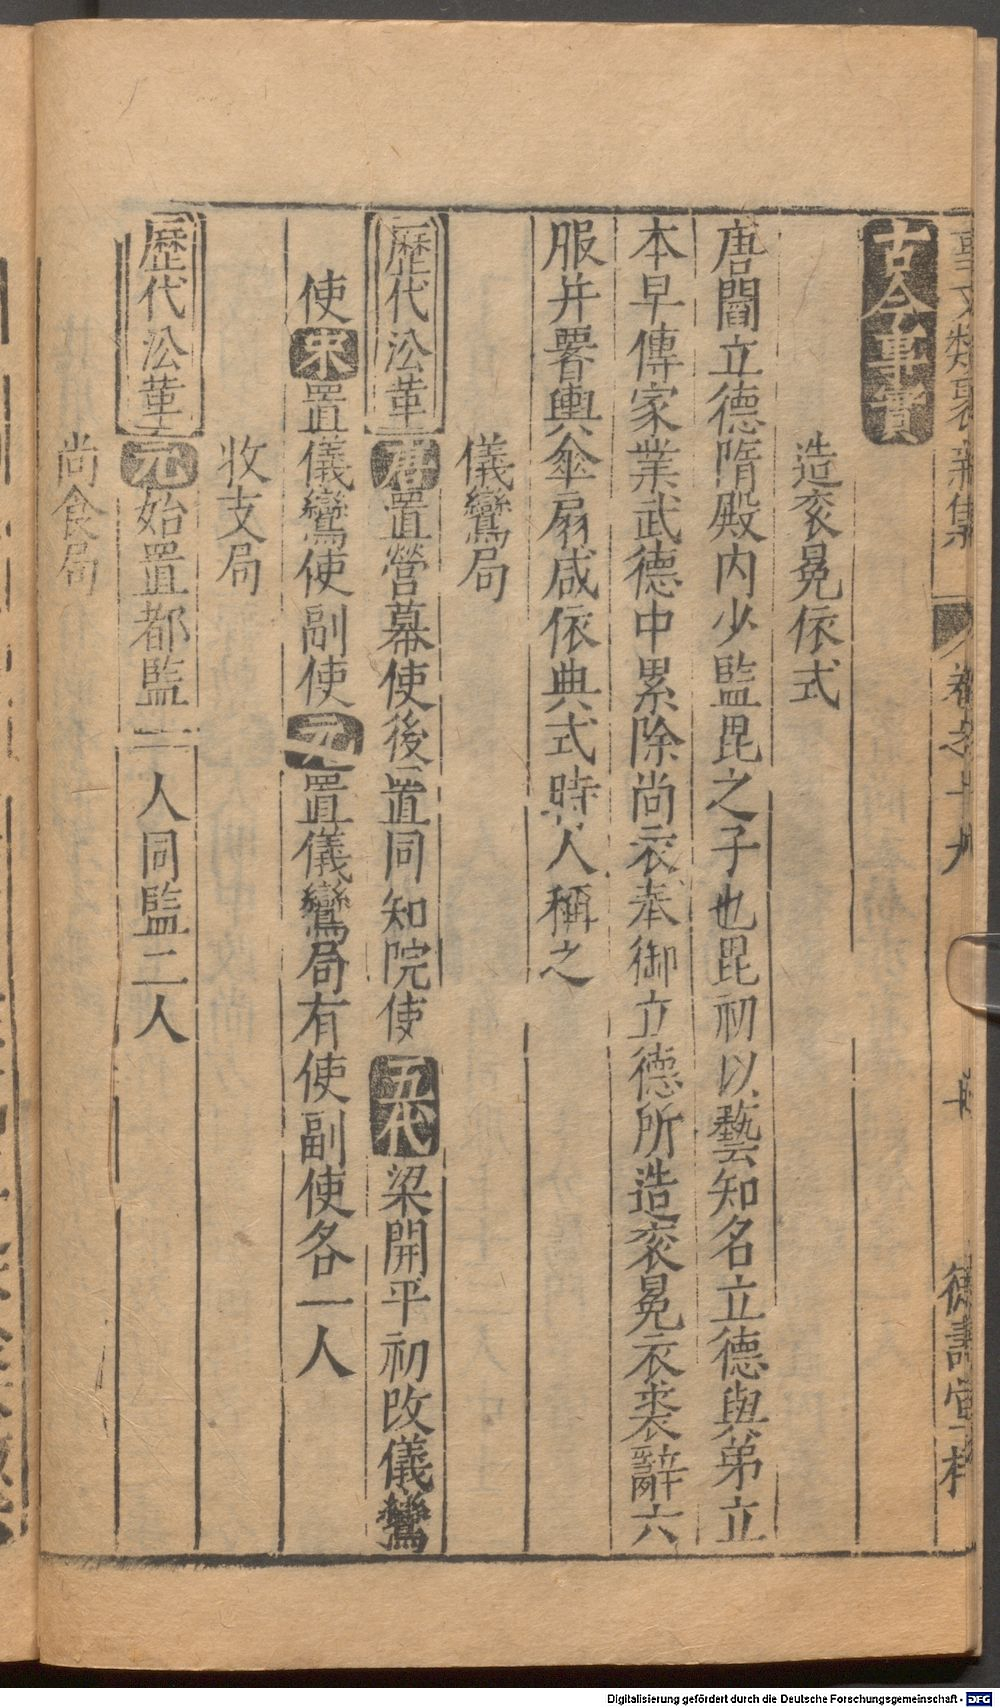 事文類聚新集 卷之十九 德壽堂梓
古今事實
造衮冕依式
唐閻立德隋殿内少監毘之子也毘初以藝知名立德與弟立
本早傳家業武德中累除尚衣奉御立德所造衮冕衣裘辭六
服并署輿傘扇咸依典式時人稱之
儀鸞局
歷代㳂革 唐置營幕使後置同知院使 五代梁開平初改儀鸞
使宋置儀鸞使副使元置儀鸞局有使副使各一人
收支局
歷代㳂革 元始置都監二人同監二人
尚食局
Digitalisierung gefördert durch die Deutsche Forschungsgemeinschaft - DFG